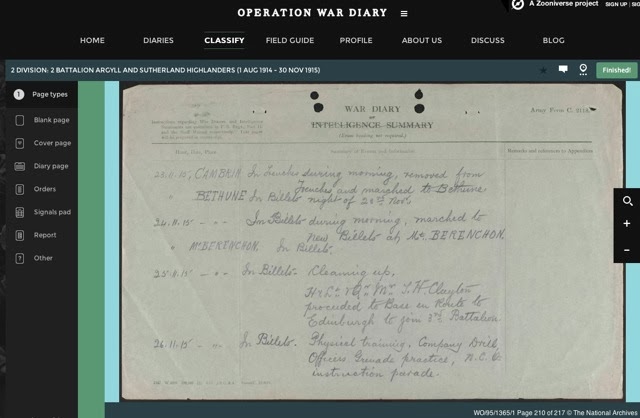 A Zooniverse project
SIGN UP
OPERATION WAR DIARY
HOME DIARIES CLASSIFY FIELD GUIDE PROFILE ABOUT US DISCUSS BLOG
2 DIVISION: 2 BATTALION ARGYLL AND SUTHERLAND HIGHLANDERS (1 AUG 1914 - 30 NOV 1915)
Finished!
1 Page types
Blank page
Cover page
Diary page
Orders
Signals pad
Report
Other
WAR DIARY
or
INTELLIGENCE SUMMARY
(Erase heading not required).
Army Form C. 2118.
Hour, Date, Place
Summary of Events and Information
Remarks and references to Appendices
CAMBRIN In Trenches during morning, removed from
Trenches and marched to Bethune
" BETHUNE In Billets night of 23rd Nov.
24.11.15 - " - In Billets during morning, marched to
New Billets at Mt. BERENCHON.
" Mt BERENCHON. In Billets.
25.11.15 - " - In Billets. Cleaning up.
Hr & Lt & Qr Mr J. H Clayton
proceeded to Base en Route to
Edinburgh to join 3rd Battalion
26.11.15 - " - In Billets. Physical training, Company Drill,
Officers Grenade practice, N.C.O.
instruction parade.
WO/95/1365/1 Page 210 of 217 © The National Archives